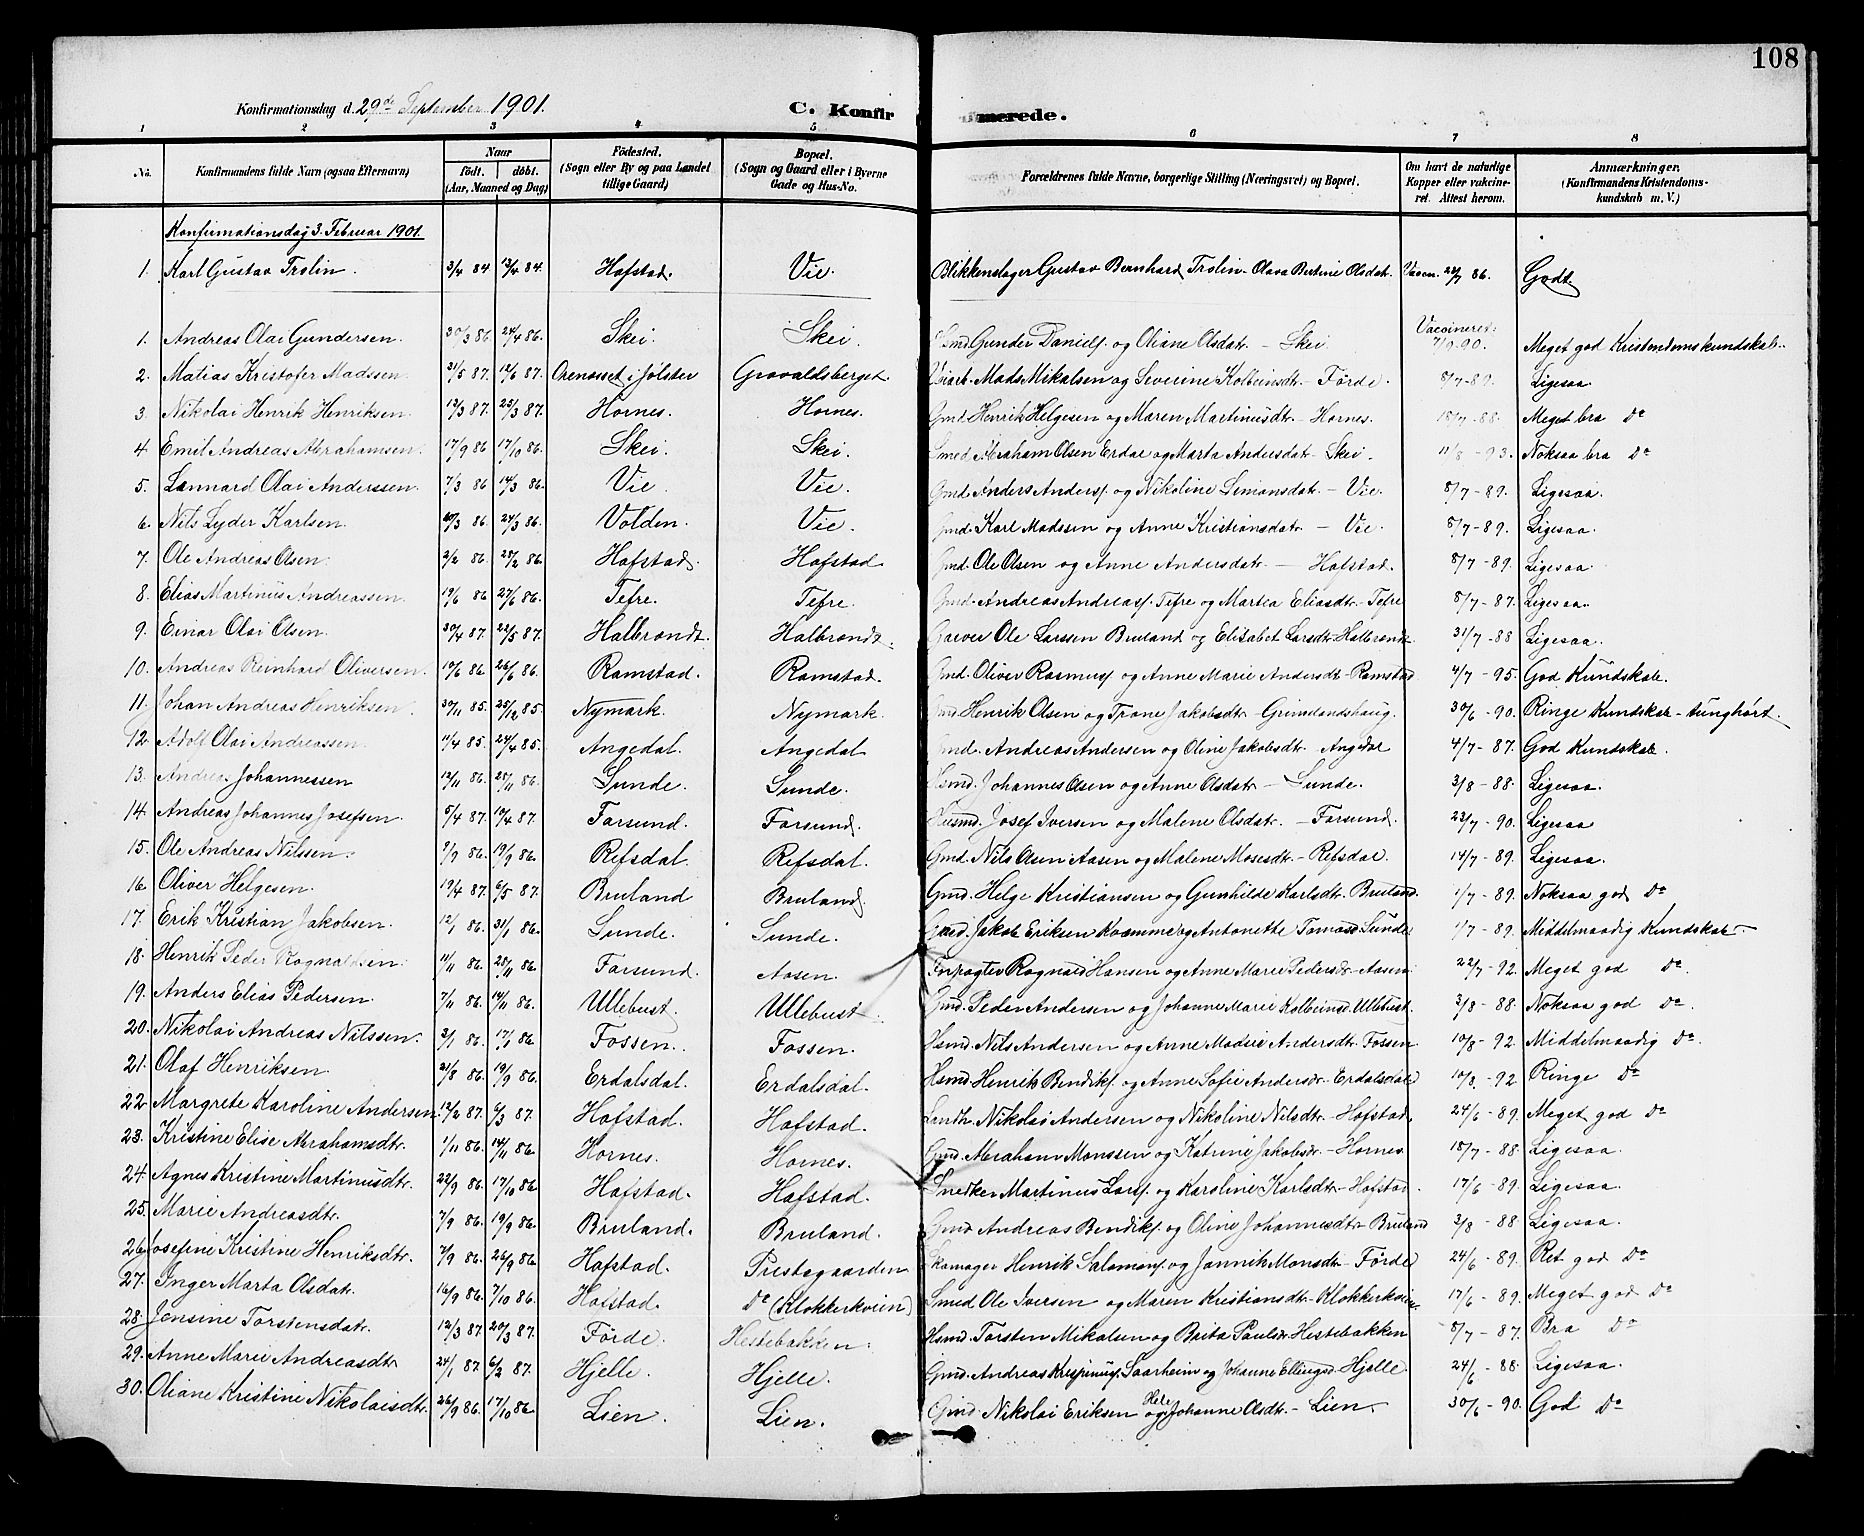 108
Konfirmationsdag d. 29de September 1901. C. Konfirmerede.
1 2 3 4 5 6 7 8
No. Konfirmandens fulde Navn (ogsaa Efternavn) Naar födt. döbt. (Aar, Maaned og Dag) Födested. (Sogn eller By og paa Landet tillige Gaard) Bopæl. (Sogn og Gaard eller i Byerne Gade og Hus-No. Forældrenes fulde Navne, borgerlige Stilling (Næringsvei) og Bopæl. Om havt de naturlige Kopper eller vakcineret. Attest herom. Anmærkninger. (Konfirmandens Kristendomskundskab m. V.)
Konfirmationsdag 3. Februar 1901.
1. Karl Gustav Trolin. 3/4 84 13/4 84. Hafstad. Vie. Blikkenslager Gustav Bernhard Trolin - Olava Bertine Olsdat. Vaccn. 22/7 86. Godt.
1. Andreas Olai Gundersen. 30/3 86 24/4 86. Skei. Skei. Hsmd. Gunder Danielsen og Oliane Olsdatr. - Skei Vaccineret: 7/9 90. Meget god Kristendomskundskab.
2. Matias Kristofer Madssen. 31/5 87. 12/6 87. i Jølster Grovaldsberget. Veiarb. Mads Mikalsen og Severine Kolbeinsdtr. - Förde. 8/7 - 89. Ligesaa.
3. Nikolai Henrik Henriksen. 12/3 87. 25/3 87. Hornes. Hornes. Gmd. Henrik Helgesen og Maren Martinusdtr. - Hornes. 18/7 - 88. Meget bra Do
4 Emil Andreas Abrahamsen. 17/9 86 17/10 86. Skei. Skei. Smed Abraham Olsen Erdal og Marta Andersdatr - Skei. 11/8 - 93. Noksaa bra Do
5. Lennard Olai Anderssen. 7/3 86 14/3 86. Vie. Vie. Gmd. Anders Andersen og Nikoline Simonsdatr. - Vie. 8/7 - 89. Ligesaa.
6. Nils Lyder Karlsen. 10/3 86. 24/3 86. Volden. Vie. Gmd. Karl Madssen og Anne Kristiansdatr. - Vie. 8/7 - 89. Ligesaa.
7. Ole Andreas Olsen. 2/2 86. 28/2 86. Hafstad. Hafstad Gmd. Ole Olsen og Anne Andersdatr. - Hafstad. 8/7 - 89. Ligesaa.
8. Elias Martinus Andreassen. 19/6 86 27/6 86. Tefre. Tefre. Gmd. Andreas Andreass. Tefre og Martia Eliasdtr. - Tefre 8/7 - 87. Ligesaa.
9. Einar Olai Olsen. 30/4 87. 22/5 87. Halbrendt. Halbrendt. Garver Ole Larssen Bruland og Elisabet Larsdtr. - Halbrendt 31/7 - 88 Ligesaa.
10. Andreas Reinhard Oliversen. 10/6 86. 26/6 86. Ramstad. Ramstad. Gmd. Oliver Rasmuss. og Anne Marie Andersdt. - Ramstad 4/7 - 95. God Kundskab.
11. Johan Andreas Henriksen. 30/11 85. 25/12 85. Nymark. Nymark. Gmd. Henrik Olsen og Trane Jakobsdtr. - Grimlandshaug. 30/6 - 90. Ringe Kundskab - tunghørt.
12. Adolf Olai Andreassen. 11/4 85. 24/4 85. Angedal. Angedal Gmd. Andreas Andersen og Oline Jakobsdtr. - Angedal 4/7 - 87. God Kundskab.
13. Andreas Johannessen 12/11 86. 28/11 86. Sunde. Sunde. Hsmd. Johannes Olsen og Anne Olsdatr. - Sunde. 3/8 - 88. Ligesaa.
14. Andreas Johannes Josefsen. 5/4 87. 19/4 87. Farsund. Farsund. Husmd. Josef Iversen og Malene Olsdatr. - Farsund. 23/7 - 90. Ligesaa
15. Ole Andreas Nilssen. 9/9 86. 19/9 86. Refsdal. Refsdal. Gmd. Nils Olsen Aasen og Malene Mosesdt. - Refsdal. 14/7 - 89. Ligesaa.
16. Oliver Helgesen. 19/4 87. 6/5 87. Bruland Bruland. Gmd. Helge Kristiansen og Gunhilde Karlsdtr. Bruland. 1/7 - 89. Noksaa god Do
17. Erik Kristian Jakobsen. 12/1 86. 31/1 86. Sunde. Sunde. Gmd. Jakob Eriksen Kvamme og Antonette Tomasd. Sunde 1/7 - 89. Middelmaadig Kundskab -
18. Henrik Peder Rognaldsen. 11/11 86. 28/11 86. Farsund. Aasen. Inrogtev Rognald Hansen og Anne Marie Pedersdr - Aasen 22/7 - 92. Meget god Do.
19. Anders Elias Pedersen. 7/11 86. 14/11 86. Ullebust. Ullebust. Gmd. Peder Andersen og Johanne Marie Kolbeinsd. Ullebust. 3/8 - 88. Noksaa god Do.
20. Nikolai Andreas Nilssen. 3/1 86. 17/1 86 Fossen. Fossen. Hsmd. Nils Andersen og Anne Madsie Andersdt. Fossen 10/8 - 92. Middelmaadig Do.
21. Olaf Henriksen. 21/8 86. 19/9 86. Erdalsdal. Erdalsdal. Hsmd. Henrik Bendiks. og Anne Sofie Andersdr. - Erdalsdal 10/8 - 92 Ringe Do
22. Margrete Karoline Andersen. 12/2 87. 6/3 87. Hafstad. Hafstad. Landh. Nikolai Andersen og Nikoline Nilsdtr. - Hafstad. 24/6 - 89. Meget god Do
23. Kristine Elise Abrahamsdtr. 1/11 86. 14/11 86. Hornes. Hornes. Gmd. Abraham Monssen og Katrine Jakobsdr. - Hornes. 18/7 - 88. Ligesaa.
24. Agnes Kristine Martinusdtr. 22/9 86. 17/10 86. Hafstad. Hafstad. Snedker Martinus Larss. og Karoline Karlsdtr. - Hafstad. 17/6 - 89. Ligesaa.
25. Marie Andreasdtr. 7/9 86. 19/9 86. Bruland. Bruland. Gmd Andreas Bendiks. og Oline Johannesdtr. Bruland 3/8 - 88 Ligesaa.
26. Josefine Kristine Henriksdtr. 7/9 86. 26/9 86. Hafstad. Prestegaarden Skomager Henrik Salomons. og Jannik Monsdtr. - Förde 24/6 - 89. Ret god Do
27. Inger Marta Olsdatr. 16/9 86. 7/10 86. Hafstad. Do (Klokkerkvien) Smed Ole Iversen og Maren Kristiansdtr. - Klokkerkvien. 17/6 - 89. Meget god Do
28. Jensine Torstensdatr. 12/3 87. 20/3 87. Förde. Hestebakken. Hsmd. Torsten Mikalsen og Brita Paulsdr. Hestebakken 8/7 - 87. Bra Do
29. Anne Marie Andreasdtr 24/1 87. 6/2 87. Hjelle. Hjelle. Gmd. Andreas Krispinus. Saarheim og Johanne Ellingsd. - Hjelle 24/6 - 88. Ligesaa.
30. Oliane Kristine Nikolaisdtr. 26/9 86. 17/10 86. Lien. Lien. Gmd. Nikolai Eriksen Hele og Johanne Olsdt. - Lien. 30/6 - 90. God Do